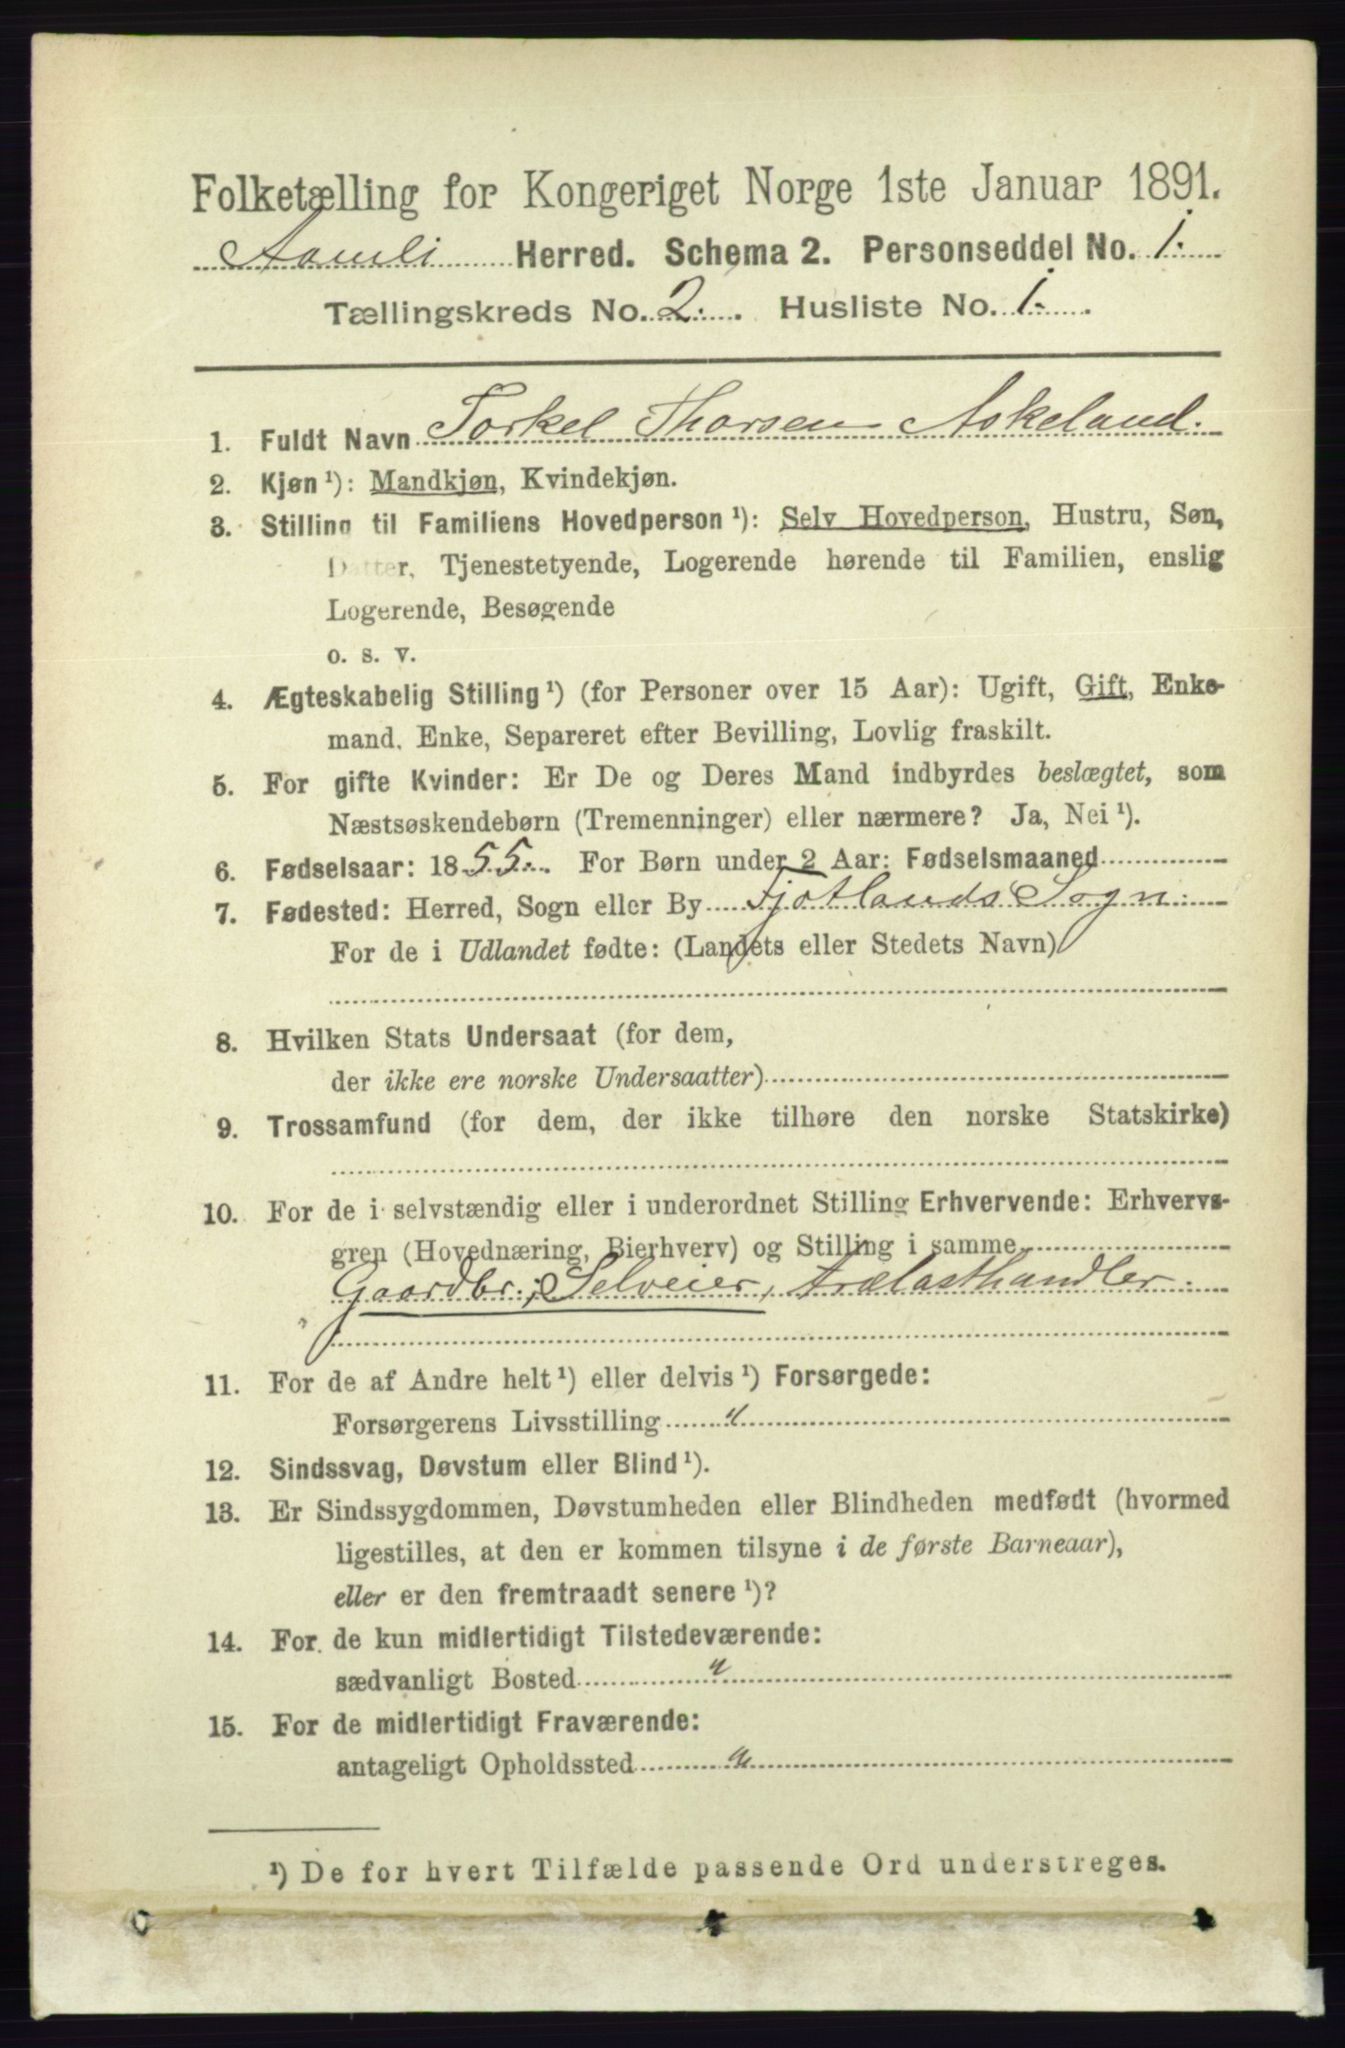 Folketælling for Kongeriget Norge 1ste Januar 1891.
Aamli Herred. Schema 2. Personseddel No. 1.
Tællingskreds No. 2. Husliste No. 1.
1. Fuldt Navn Torkel Thorsen Askeland.
2. Kjøn ¹): Mandkjøn, Kvindekjøn.
3. Stilling til Familiens Hovedperson ¹): Selv Hovedperson, Hustru, Søn,
Datter, Tjenestetyende, Logerende hørende til Familien, enslig
Logerende, Besøgende
o. s. v.
4. Ægteskabelig Stilling ¹) (for Personer over 15 Aar): Ugift, Gift, Enke-
mand, Enke, Separeret efter Bevilling, Lovlig fraskilt.
5. For gifte Kvinder: Er De og Deres Mand indbyrdes beslægtet, som
Næstsøskendebørn (Tremenninger) eller nærmere? Ja, Nei ¹).
6. Fødselsaar: 1855. For Børn under 2 Aar: Fødselsmaaned
7. Fødested: Herred, Sogn eller By Fjotlands Sogn.
For de i Udlandet fødte: (Landets eller Stedets Navn)
8. Hvilken Stats Undersaat (for dem,
der ikke ere norske Undersaatter)
9. Trossamfund (for dem, der ikke tilhøre den norske Statskirke)
10. For de i selvstændig eller i underordnet Stilling Erhvervende: Erhvervs-
gren (Hovednæring, Bierhverv) og Stilling i samme
Gaardbr.; Selveier, Trælasthandler.
11. For de af Andre helt ¹) eller delvis ¹) Forsørgede:
Forsørgerens Livsstilling "
12. Sindssvag, Døvstum eller Blind ¹).
13. Er Sindssygdommen, Døvstumheden eller Blindheden medfødt (hvormed
ligestilles, at den er kommen tilsyne i de første Barneaar),
eller er den fremtraadt senere ¹)?
14. For de kun midlertidigt Tilstedeværende:
sædvanligt Bosted "
15. For de midlertidigt Fraværende:
antageligt Opholdssted "
¹) De for hvert Tilfælde passende Ord understreges.